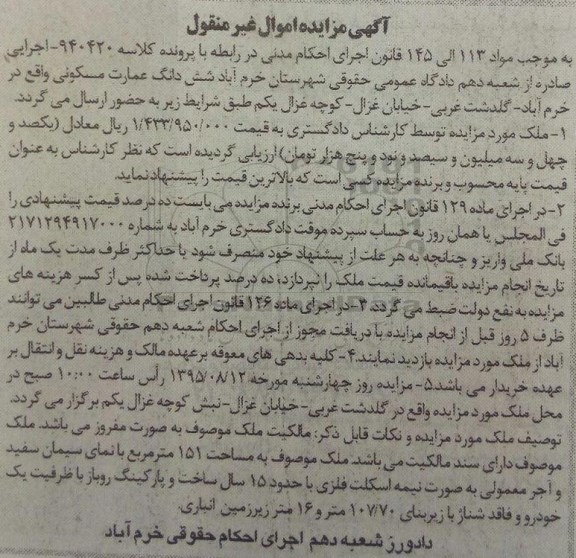 آگهی مزایده اموال غیر منقول
به موجب مواد ۱۱۳ الی ۱۴۵ قانون اجرای احکام مدنی در رابطه با پرونده کلاسه ۹۴۰۴۲۰-اجرایی
صادره از شعبه دهم دادگاه عمومی حقوقی شهرستان خرم آباد شش دانگ عمارت مسکونی واقع در
خرم آباد-گلدشت غربی-خیابان غزال-کوچه غزال یکم طبق شرایط زیر به حضور ارسال می گردد.
۱-ملک مورد مزایده توسط کارشناس دادگستری به قیمت ۱/۴۳۳/۹۵۰/۰۰۰ ریال معادل (یکصد و
چهل و سه میلیون و سیصد و نود و پنج هزار تومان) ارزیابی گردیده است که نظر کارشناس به عنوان
قیمت پایه محسوب و برنده مزایده کسی است که بالاترین قیمت را پیشنهاد نماید.
۲-در اجرای ماده ۱۲۹ قانون اجرای احکام مدنی برنده مزایده می بایست ده درصد قیمت پیشنهادی را
فی المجلس یا همان روز به حساب سپرده موقت دادگستری خرم آباد به شماره ۲۱۷۱۲۹۴۹۱۷۰۰۰
بانک ملی واریز و چنانچه به هر علت از پیشنهاد خود منصرف شود یا حداکثر ظرف مدت یک ماه از
تاریخ انجام مزایده باقیمانده قیمت ملک را نپردازد؛ ده درصد پرداخت شده پس از کسر هزینه های
مزایده به نفع دولت ضبط می گردد. ۳-در اجرای ماده ۱۲۶ قانون اجرای احکام مدنی طالبین می توانند
ظرف ۵ روز قبل از انجام مزایده با دریافت مجوز از اجرای احکام شعبه دهم حقوقی شهرستان خرم
آباد از ملک مورد مزایده بازدید نمایند.۴-کلیه بدهی های معوقه برعهده مالک و هزینه نقل و انتقال بر
عهده خریدار می باشد۵-مزایده روز چهارشنبه مورخه ۱۳۹۵/۰۸/۱۲ رأس ساعت ۱۰:۰۰ صبح در
محل ملک مورد مزایده واقع در گلدشت غربی-خیابان غزال-نبش کوچه غزال یکم برگزار می گردد.
توصیف ملک مورد مزایده و نکات قابل ذکر: مالکیت ملک موصوف به صورت مفروز می باشد. ملک
موصوف دارای سند مالکیت می باشد. ملک موصوف به مساحت ۱۵۱ مترمربع با نمای سیمان سفید
و آجر معمولی به صورت نیمه اسکلت فلزی با حدود ۱۵ سال ساخت و پارکینگ روباز با ظرفیت یک
خودرو و فاقد شناژ با زیربنای ۱۰۷/۷۰ متر و ۱۶ متر زیرزمین انباری.
دادورز شعبه دهم اجرای احکام حقوقی خرم آباد